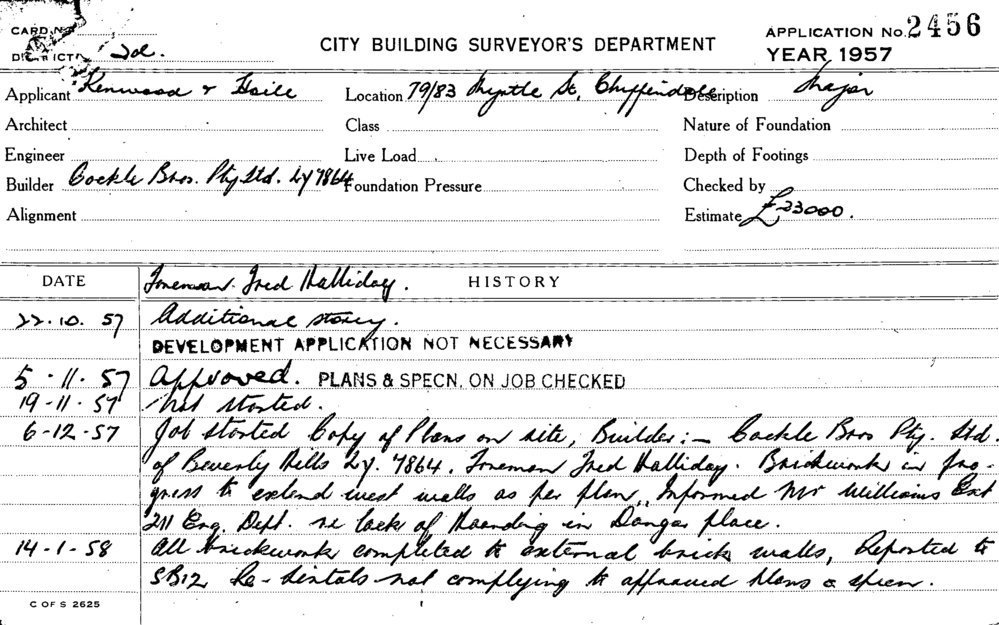 CARD No.
DISTRICT Joe.
CITY BUILDING SURVEYOR'S DEPARTMENT
APPLICATION No. 2456
YEAR 1957
Applicant Kenwood & Haile
Location 79/83 Myrtle St, Chippendale
Description Major
Architect
Class
Nature of Foundation
Engineer
Live Load
Depth of Footings
Builder Cockle Bros. Pty Ltd. LY 7864
Foundation Pressure
Checked by
Alignment
Estimate £23000.
DATE Foreman. Fred Halliday. HISTORY
22.10.57 Additional storey.
DEVELOPMENT APPLICATION NOT NECESSARY
5-11-57 Approved. PLANS & SPECN. ON JOB CHECKED
19-11-57 Not started.
6-12-57 Job started Copy of Plans on site, Builder:- Cockle Bros Pty. Ltd.
of Beverly Hills LY. 7864. Foreman Fred Halliday. Brickwork in pro-
gress to extend west walls as per plan, Informed Mr Williams Ext
211 Eng. Dept. re lack of Hoarding in Dangar place.
14-1-58 All brickwork completed to external brick walls, Reported to
SB12 Re-Lintals not complying to approved plans & specn.
C OF S 2625